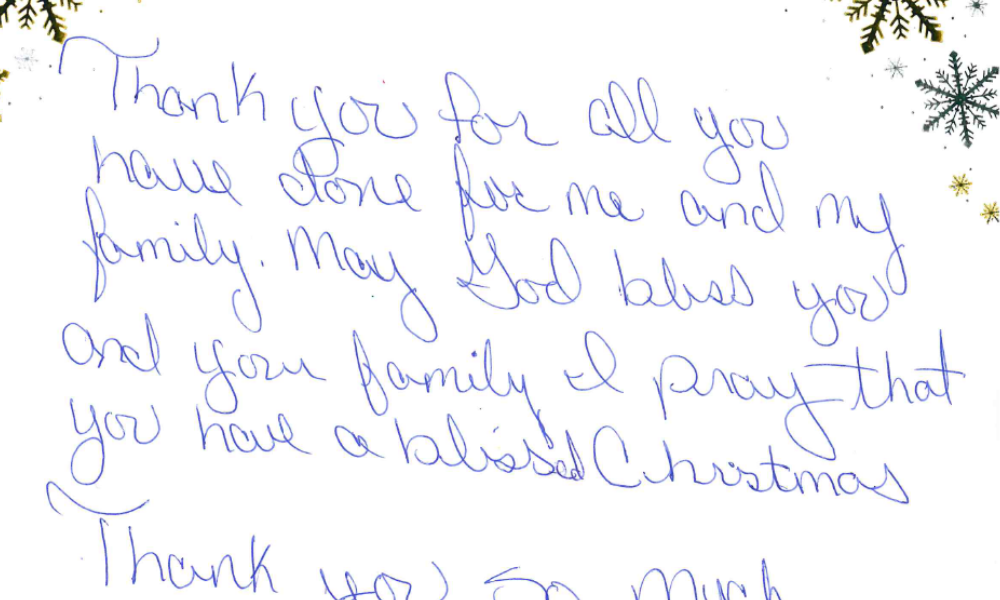 Thank you for all you
have done for me and my
family. May God bless you
and your family I pray that
you have a blessed Christmas
Thank you so much